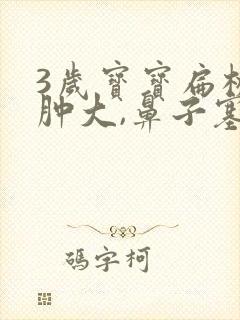 3歲寶寶扁
肿大,鼻子塞
碼字柯